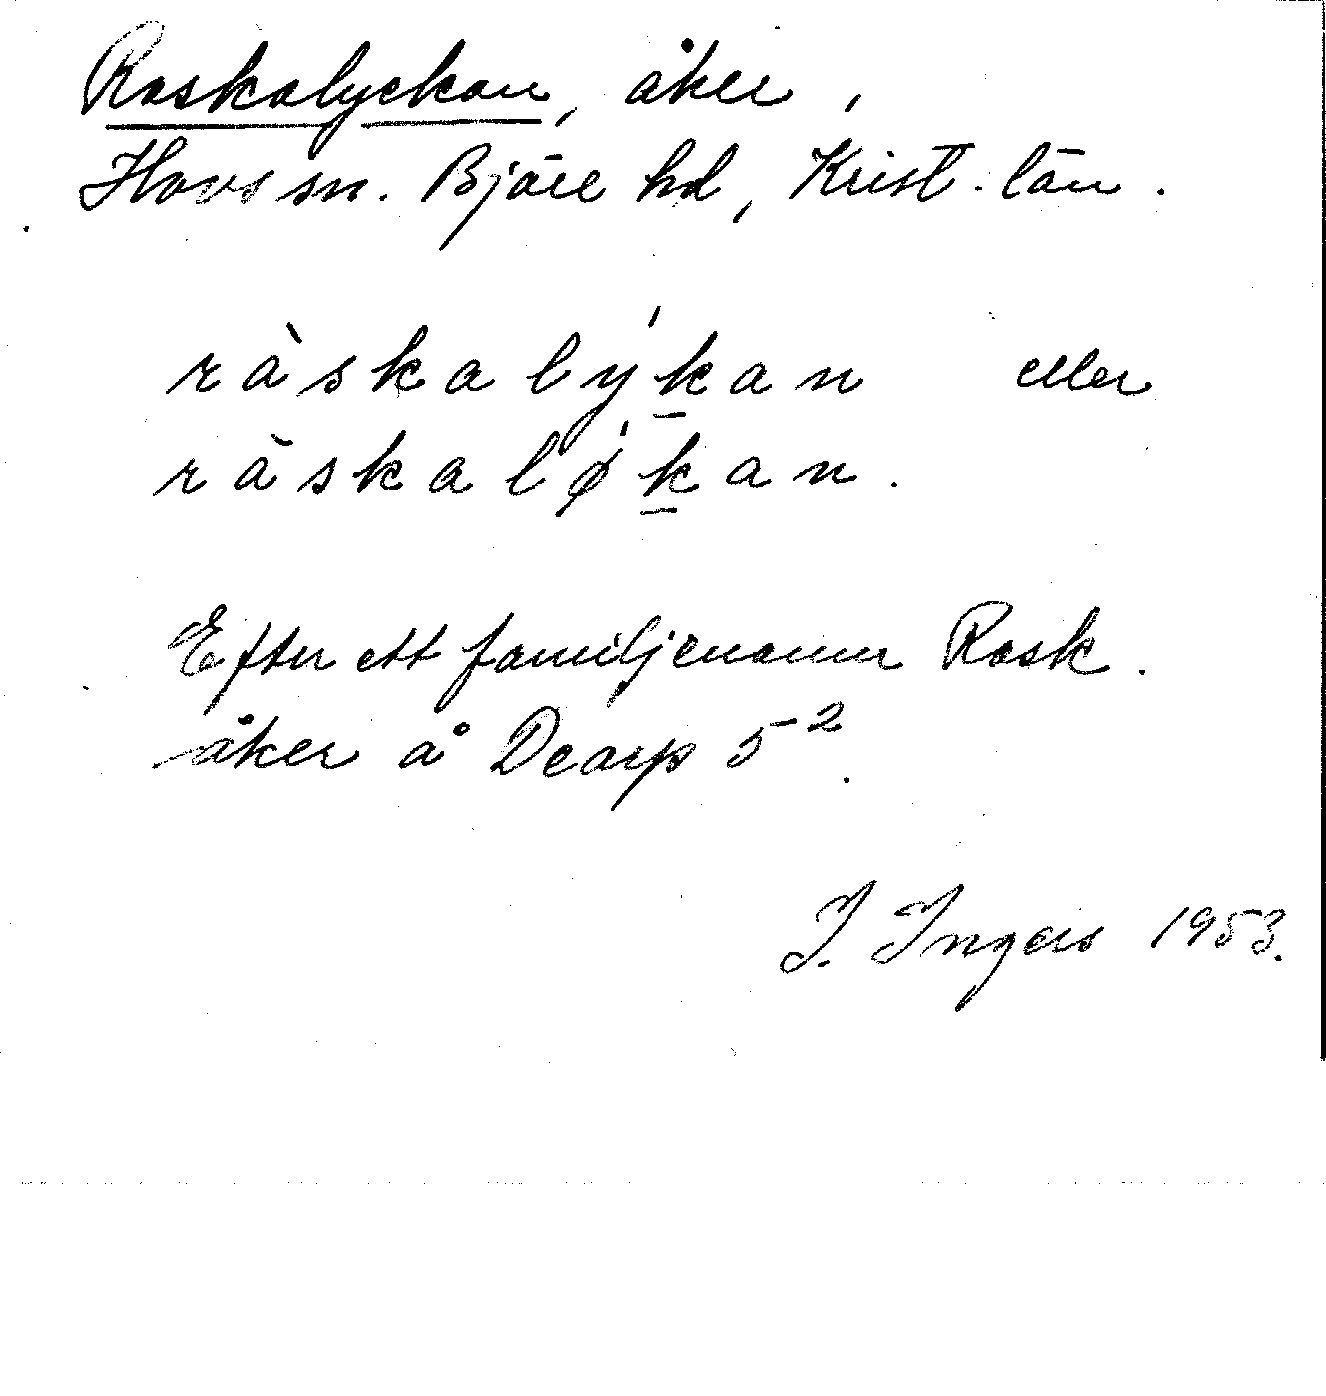 Raskalyckan, åker,
Hovs sn. Bjäre hd, Krist. län.
ràskalýkan eller
ràskalǿkan.
Efter ett familjenamn Rask.
åker å Dearp 5².
I. Ingers 1953.